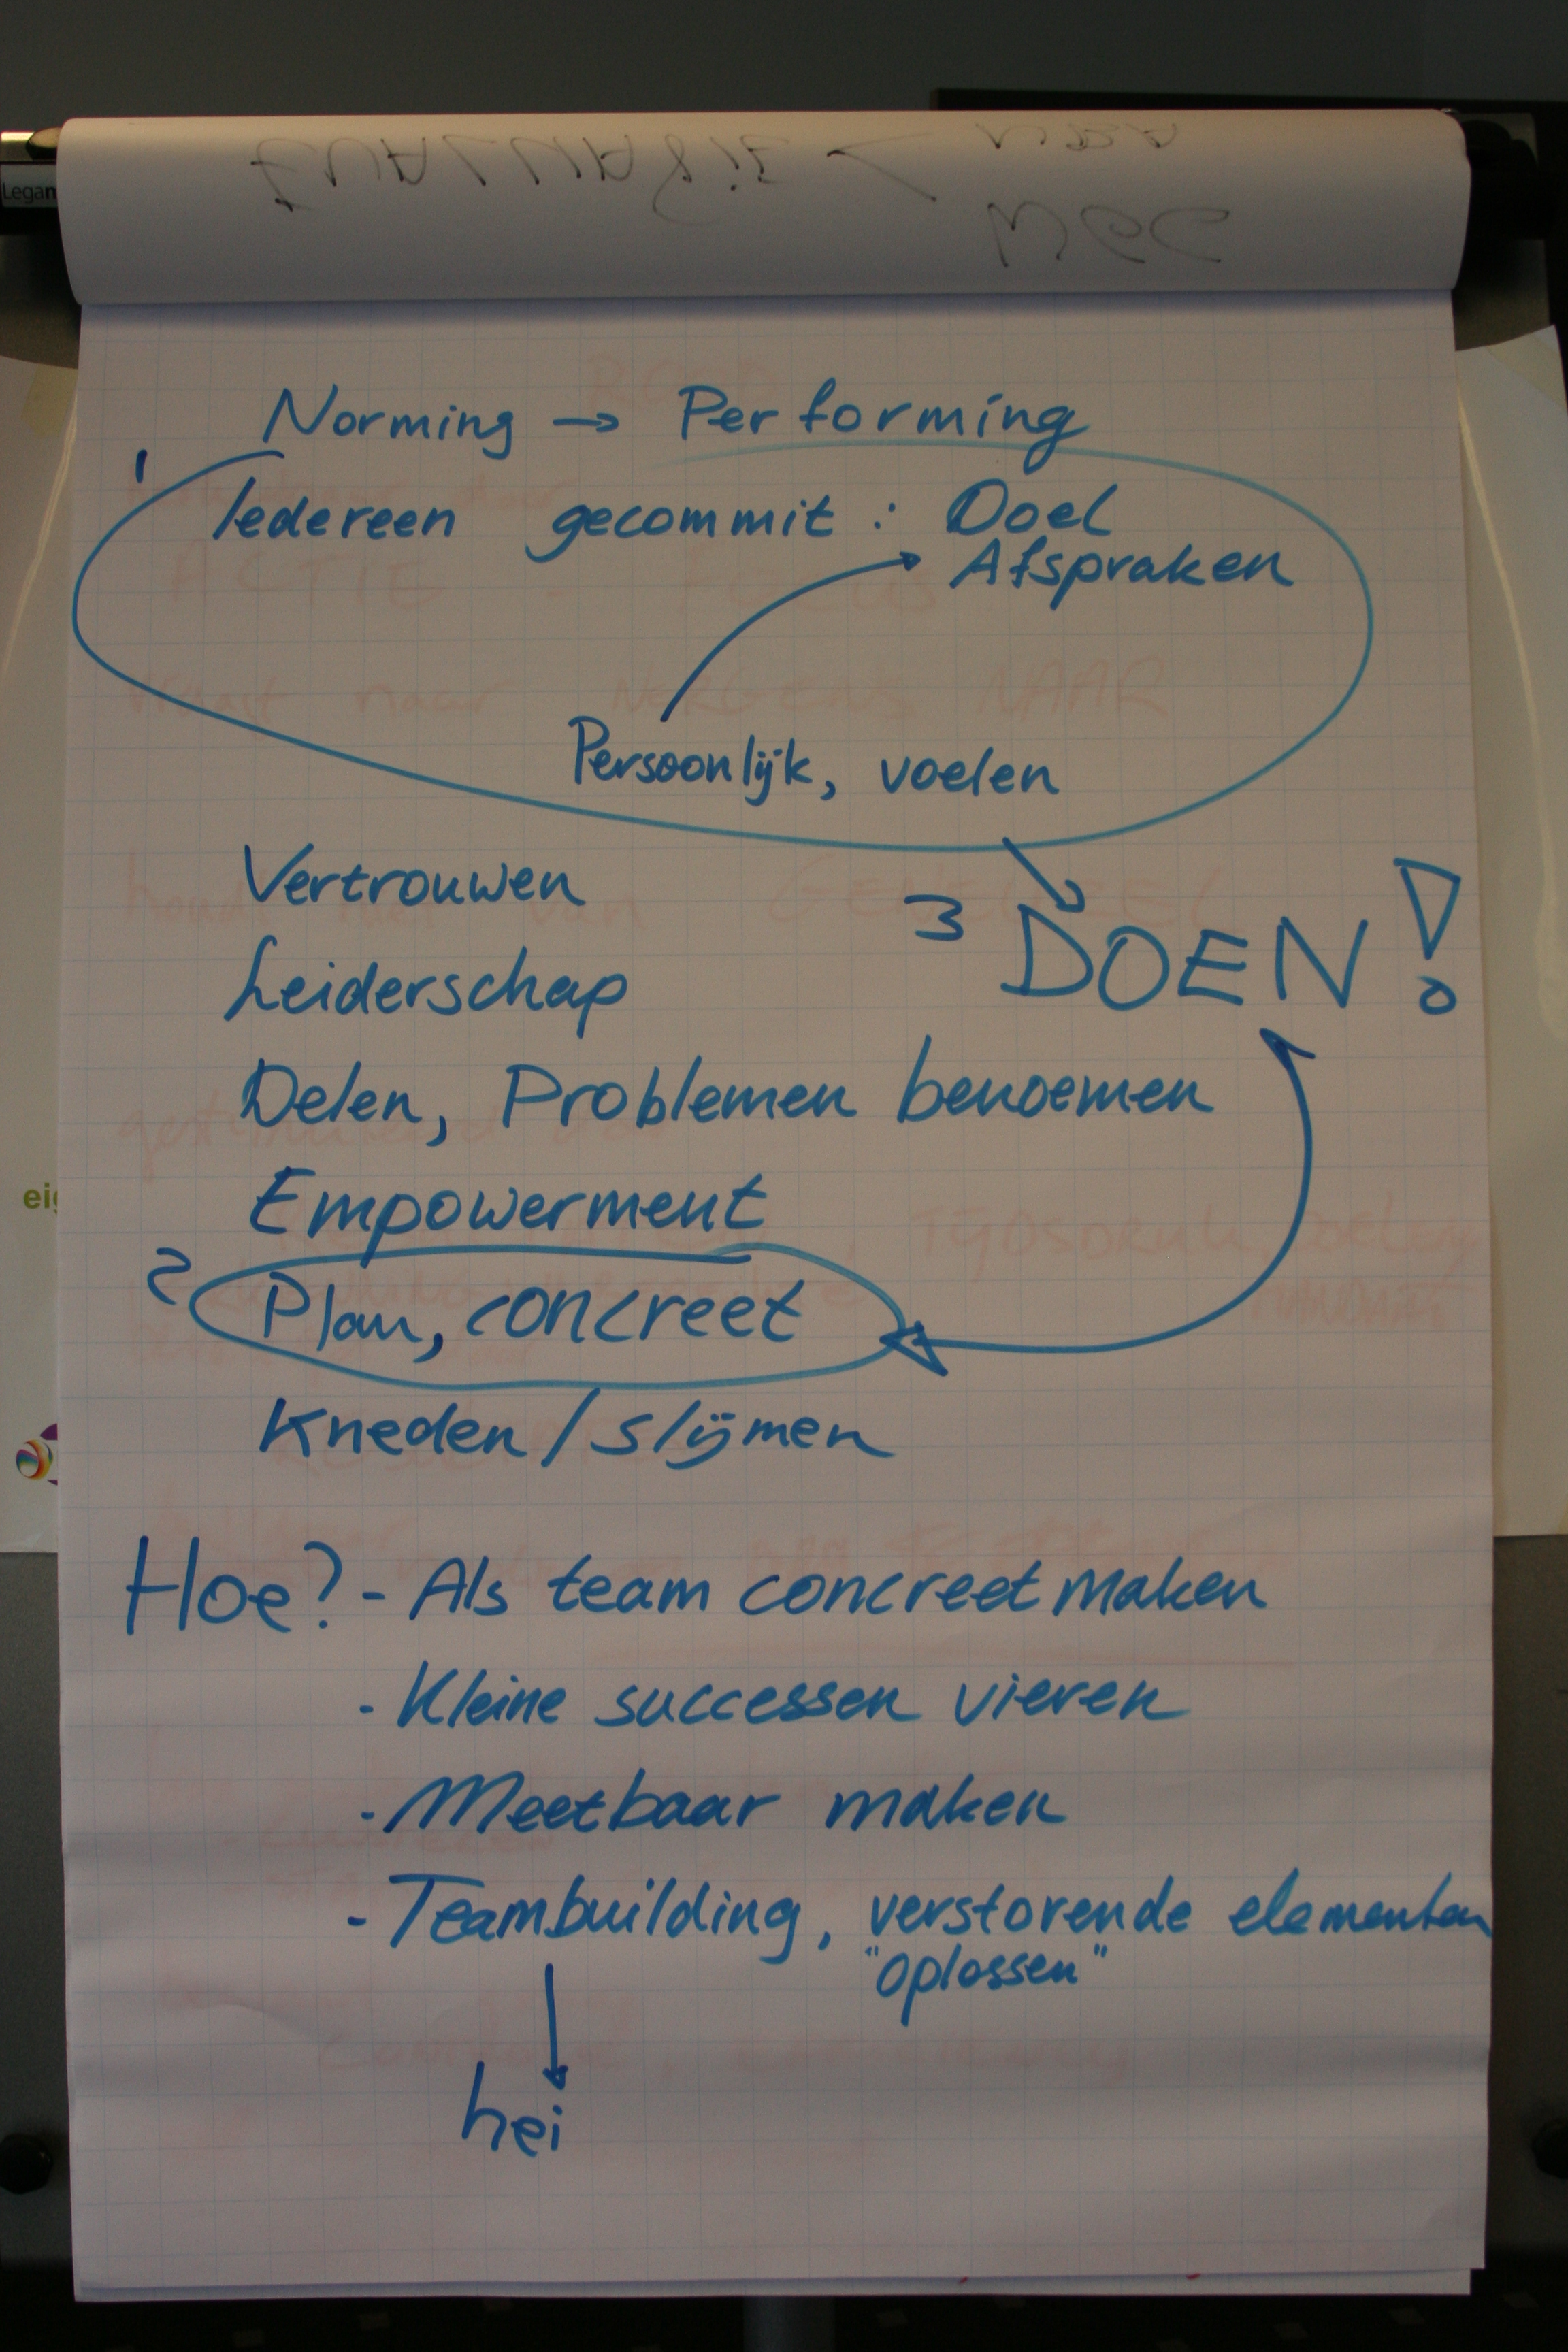 Legan
Norming → Performing
1
Iedereen gecommit : Doel
Afspraken
Persoonlijk, voelen
Vertrouwen
3 DOEN!
Leiderschap
Delen, Problemen benoemen
Empowerment
2
Plan, concreet
Kneden/slijmen
Hoe? - Als team concreet maken
- Kleine successen vieren
- Meetbaar maken
- Teambuilding, verstorende elementen
"oplossen"
hei
eig